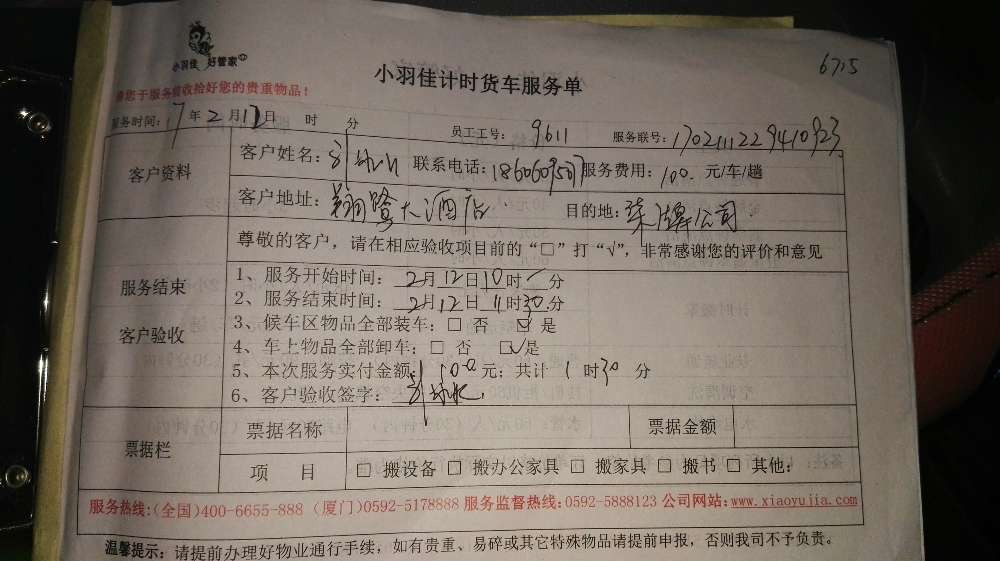 小羽佳 好管家
小羽佳计时货车服务单
6715
您于服务前收拾好您的贵重物品！
服务时间：17年2月12日 时 分 员工工号：9611 服务联号：
客户资料
客户姓名： 联系电话： 服务费用：100.元/车/趟
客户地址：翔鹭大酒店 目的地：公司
尊敬的客户，请在相应验收项目前的“□”打“√”，非常感谢您的评价和意见
服务结束
客户验收
1、服务开始时间：2月12日10时 分
2、服务结束时间：2月12日11时30分
3、候车区物品全部装车：□ 否 ☑ 是
4、车上物品全部卸车：□ 否 ☑是
5、本次服务实付金额：100元；共计 1时30分
6、客户验收签字：
票据栏
票据名称 票据金额
项 目 □ 搬设备 □ 搬办公家具 □ 搬家具 □ 搬书 □ 其他：
服务热线:(全国)400-6655-888 (厦门)0592-5178888 服务监督热线:0592-5888123 公司网站:www.xiaoyujia.com
温馨提示：请提前办理好物业通行手续，如有贵重、易碎或其它特殊物品请提前申报，否则我司不予负责。